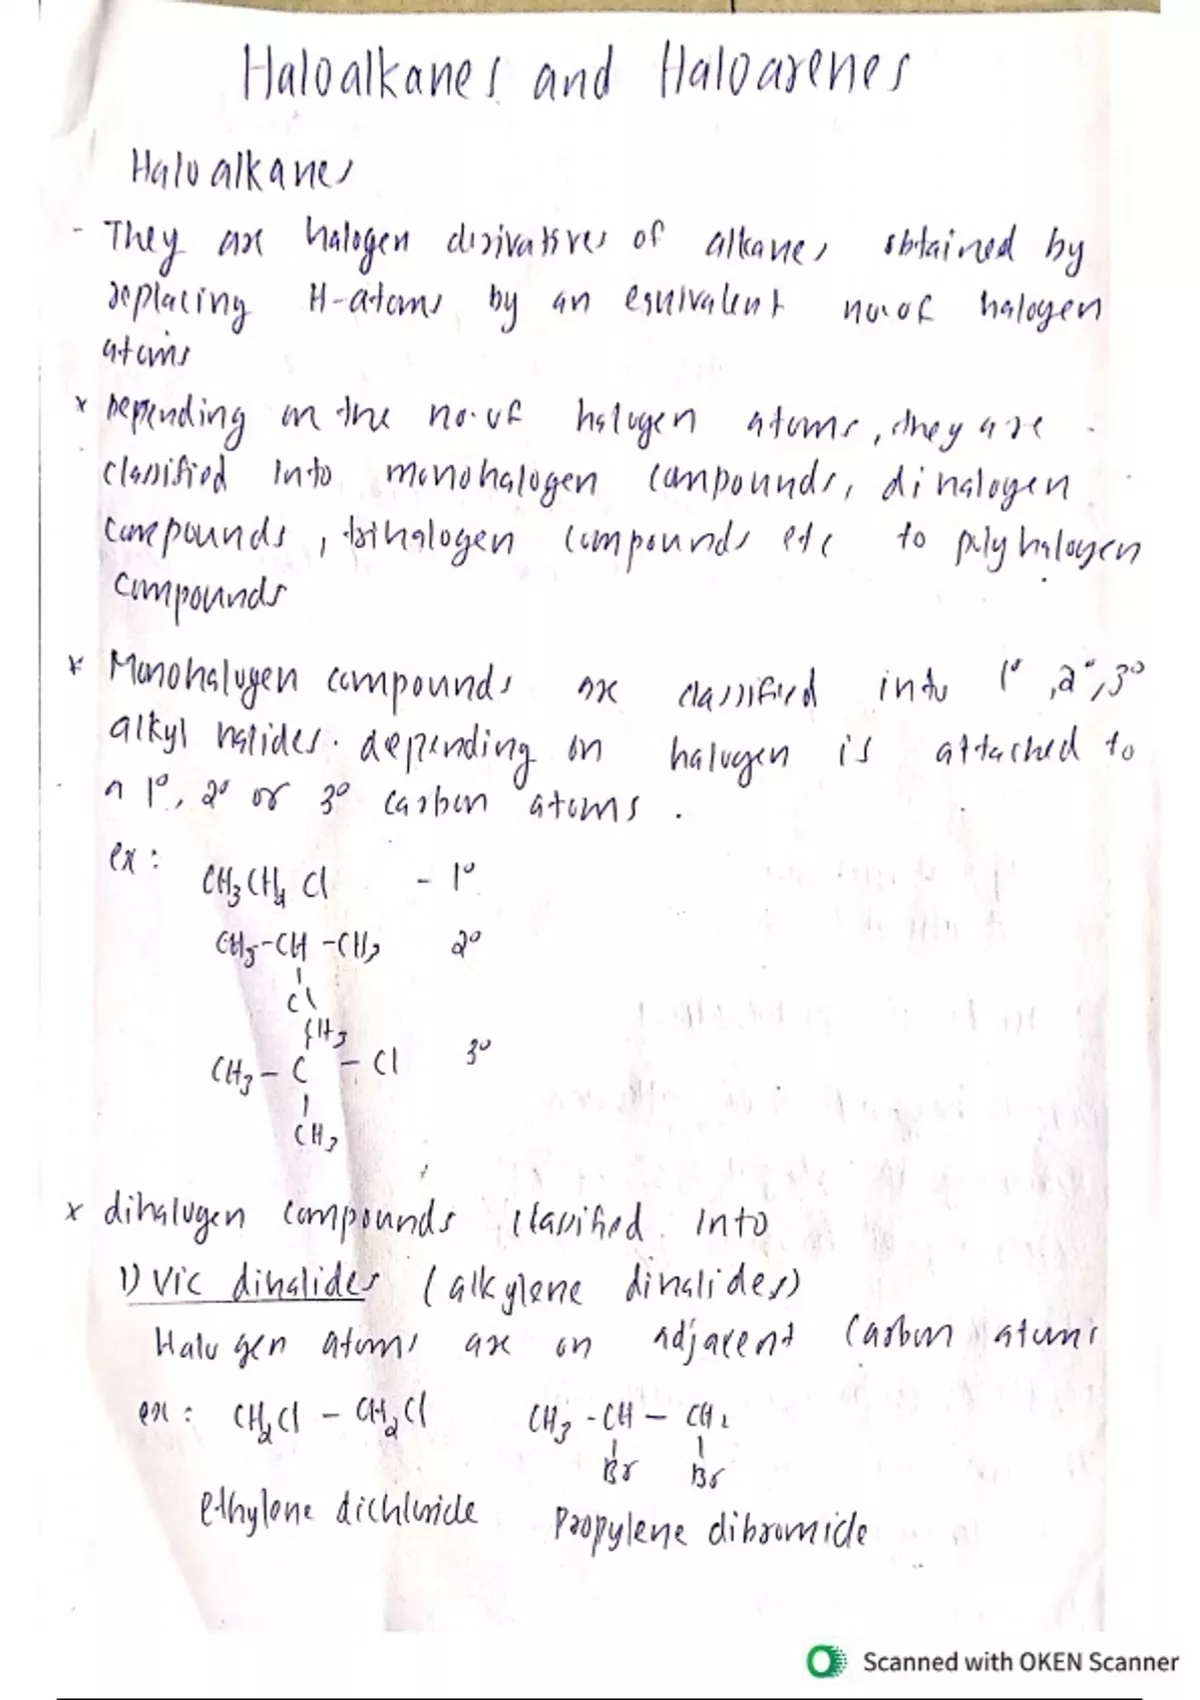 Haloalkanes and Haloarenes
Haloalkanes
- They are halogen derivatives of alkanes obtained by
replacing H-atoms by an equivalent no. of halogen
atoms
x Depending on the no. of halogen atoms, they are
classified into monohalogen compounds, dihalogen
compounds, trihalogen compounds etc to polyhalogen
compounds
x Monohalogen compounds are classified into 1°, 2°, 3°
alkyl halides. depending on halogen is attached to
a 1°, 2° or 3° carbon atoms.
ex:
CH3 CH2 Cl - 1°
CH3-CH-CH3 2°
Cl
CH3
CH3 - C - Cl 3°
CH3
x dihalogen compounds classified into
1) Vic dihalides (alkylene dihalides)
Halogen atoms are on adjacent carbon atoms
ex: CH2Cl - CH2Cl CH3 - CH - CH2
Br Br
ethylene dichloride Propylene dibromide
Scanned with OKEN Scanner